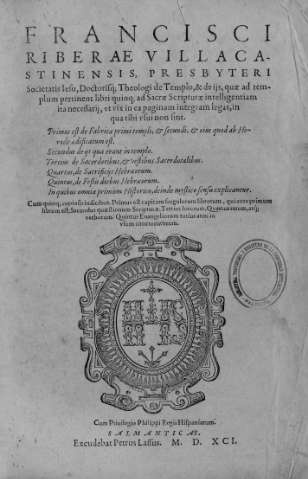 FRANCISCI
RIBERAE VILLACA-
STINENSIS, PRESBYTERI
Societatis Iesu, Doctorisq́; Theologi de Templo, & de ijs, quæ ad tem-
plum pertinent libri quinq; ad Sacræ Scripturæ intelligentiam
ita necessarij, et vix in ea paginam integram legas, in
qua tibi vsui non sint.
Primus est de Fabrica primi templi, & secundi, & eius quod ab He-
rode ædificatum est.
Secundus de ijs quæ erant in templo.
Tertius de Sacerdotibus, & vestibus Sacerdotalibus.
Quartus, de Sacrificijs Hebræorum.
Quintus, de Festis diebus Hebræorum.
In quibus omnia primùm Historicè, deinde mystico sensu explicantur.
Cum quinq; copiosis indicibus. Primus est capitum singulorum librorum, qui ante primum
librum est, Secundus quæstionum Scripturæ, Tertius locorum, Quartus rerum,
verborum Quintus Euangeliorum totius anni in
Cum Priuilegio Philippi Regis Hispaniarum.
SALMANTICAE,
Excudebat Petrus Lassus. M. D. XCI.